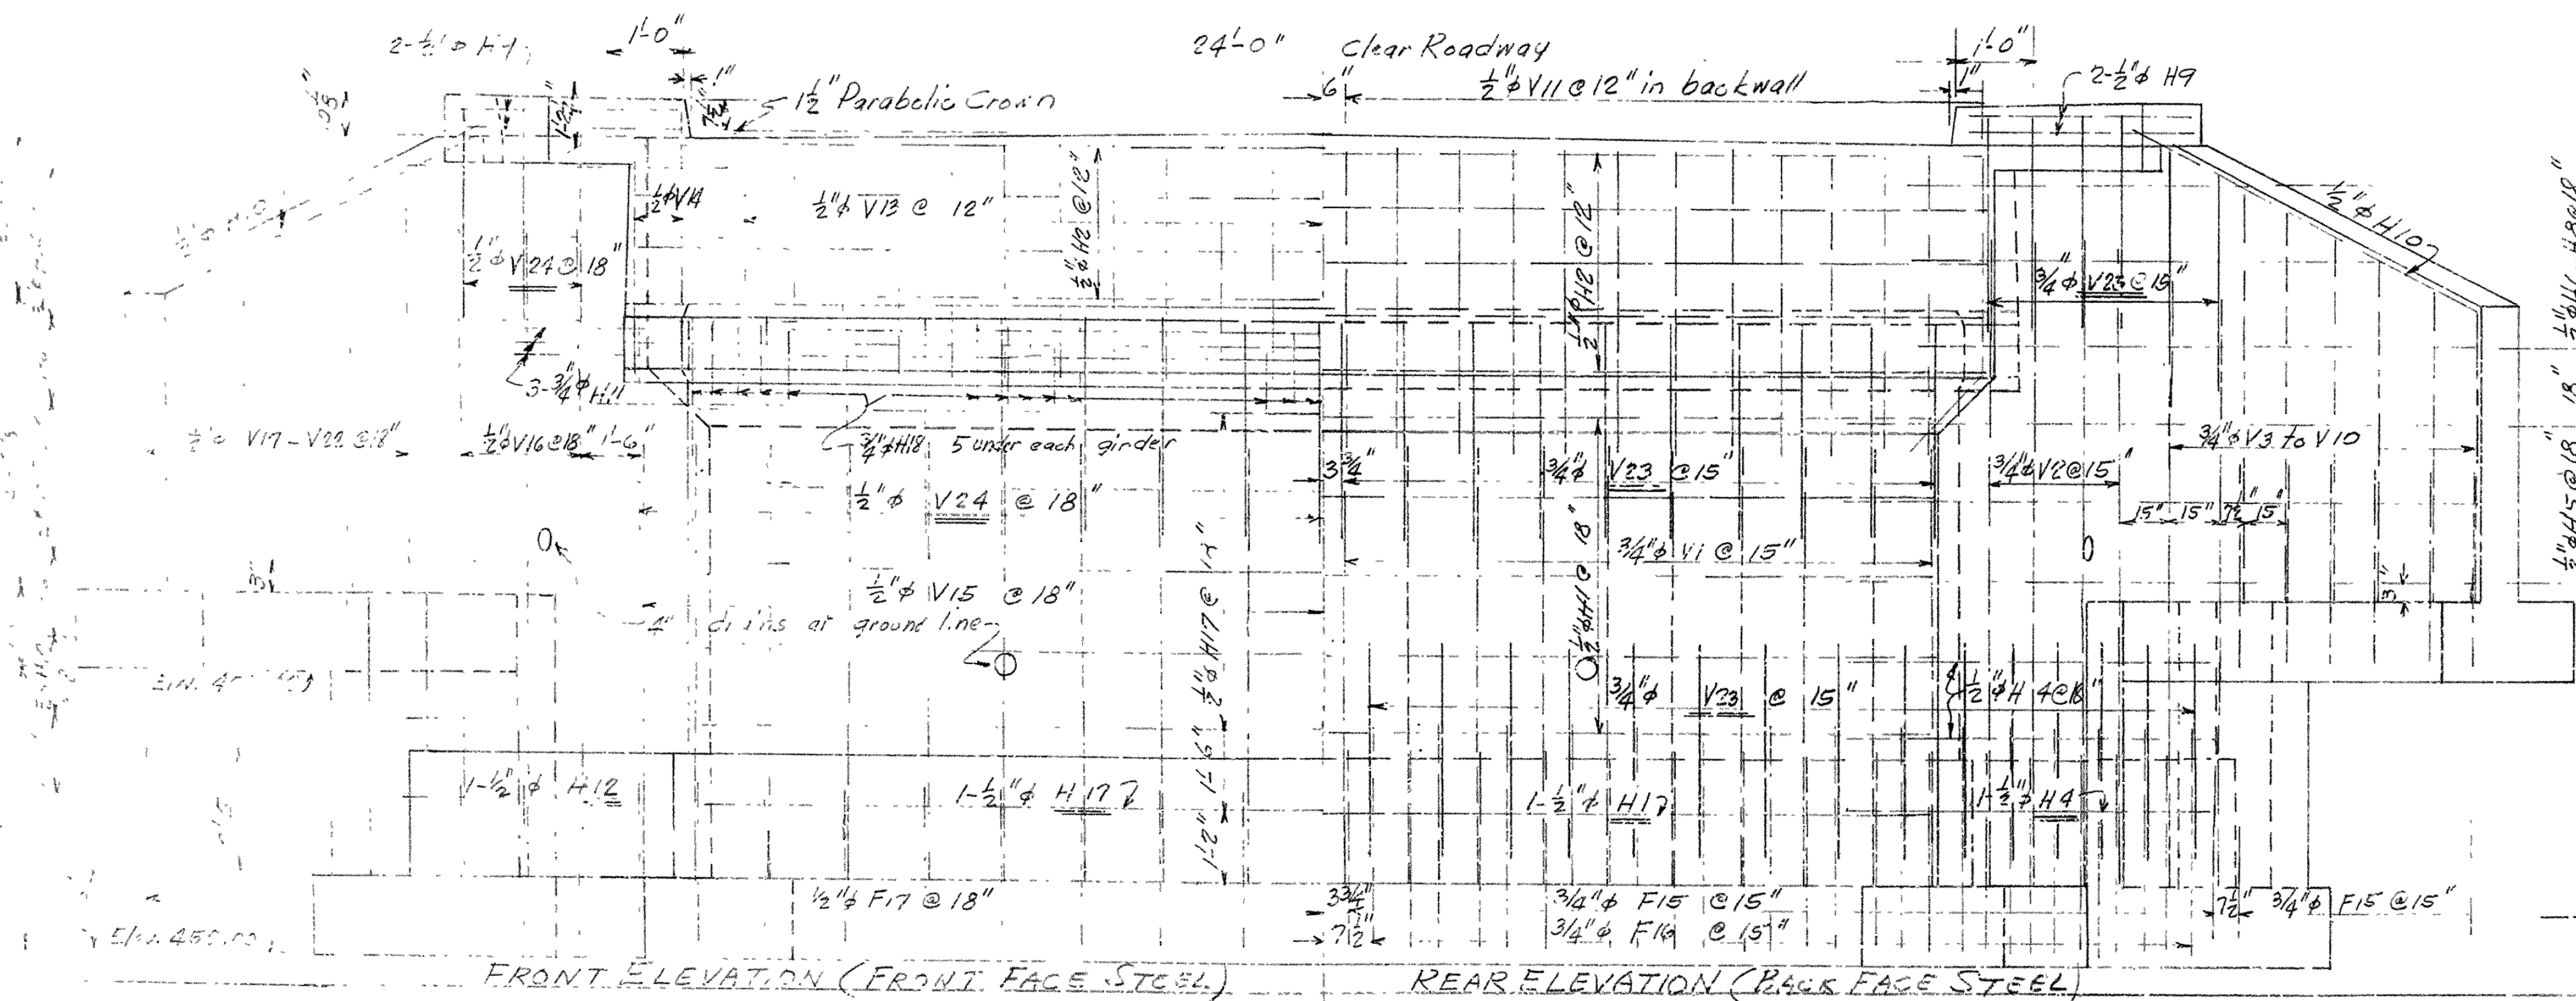 1'-0"
24'-0" Clear Roadway
1'-0"
1"
6"
1"
2-½"φ H9
1½" Parabolic Crown
½"φ V11 @ 12" in backwall
1'-2½"
7½"
½"φ V14
½"φ V13 @ 12"
½"φ H2 @ 12"
½"φ H2 @ 12"
½"φ H10
½"φ V24 @ 18"
¾"φ V23 @ 15"
3-¾"φ H11
½"φ V17-V22 @ 18"
½"φ V16 @ 18" 1'-6"
¾"φ H18 5 under each girder
3¾"
¾"φ V23 @ 15"
¾"φ V2 @ 15"
¾"φ V3 to V10
½"φ V24 @ 18"
15" 15" 7½" 15"
½"φ H1 @ 18"
¾"φ V1 @ 15"
½"φ H5 @ 18"
3"
½"φ V15 @ 18"
3"
4" drains at ground line
¾"φ V23 @ 15"
½"φ H4 @ 18"
1'-6"
1-½"φ H12
1-½"φ H17
1-½"φ H17
1-½"φ H4
1'-2"
½"φ F17 @ 18"
3¾"
¾"φ F15 @ 15"
7½"
¾"φ F15 @ 15"
7½"
¾"φ F16 @ 15"
Elev. 450.00
FRONT ELEVATION (FRONT FACE STEEL)
REAR ELEVATION (BACK FACE STEEL)